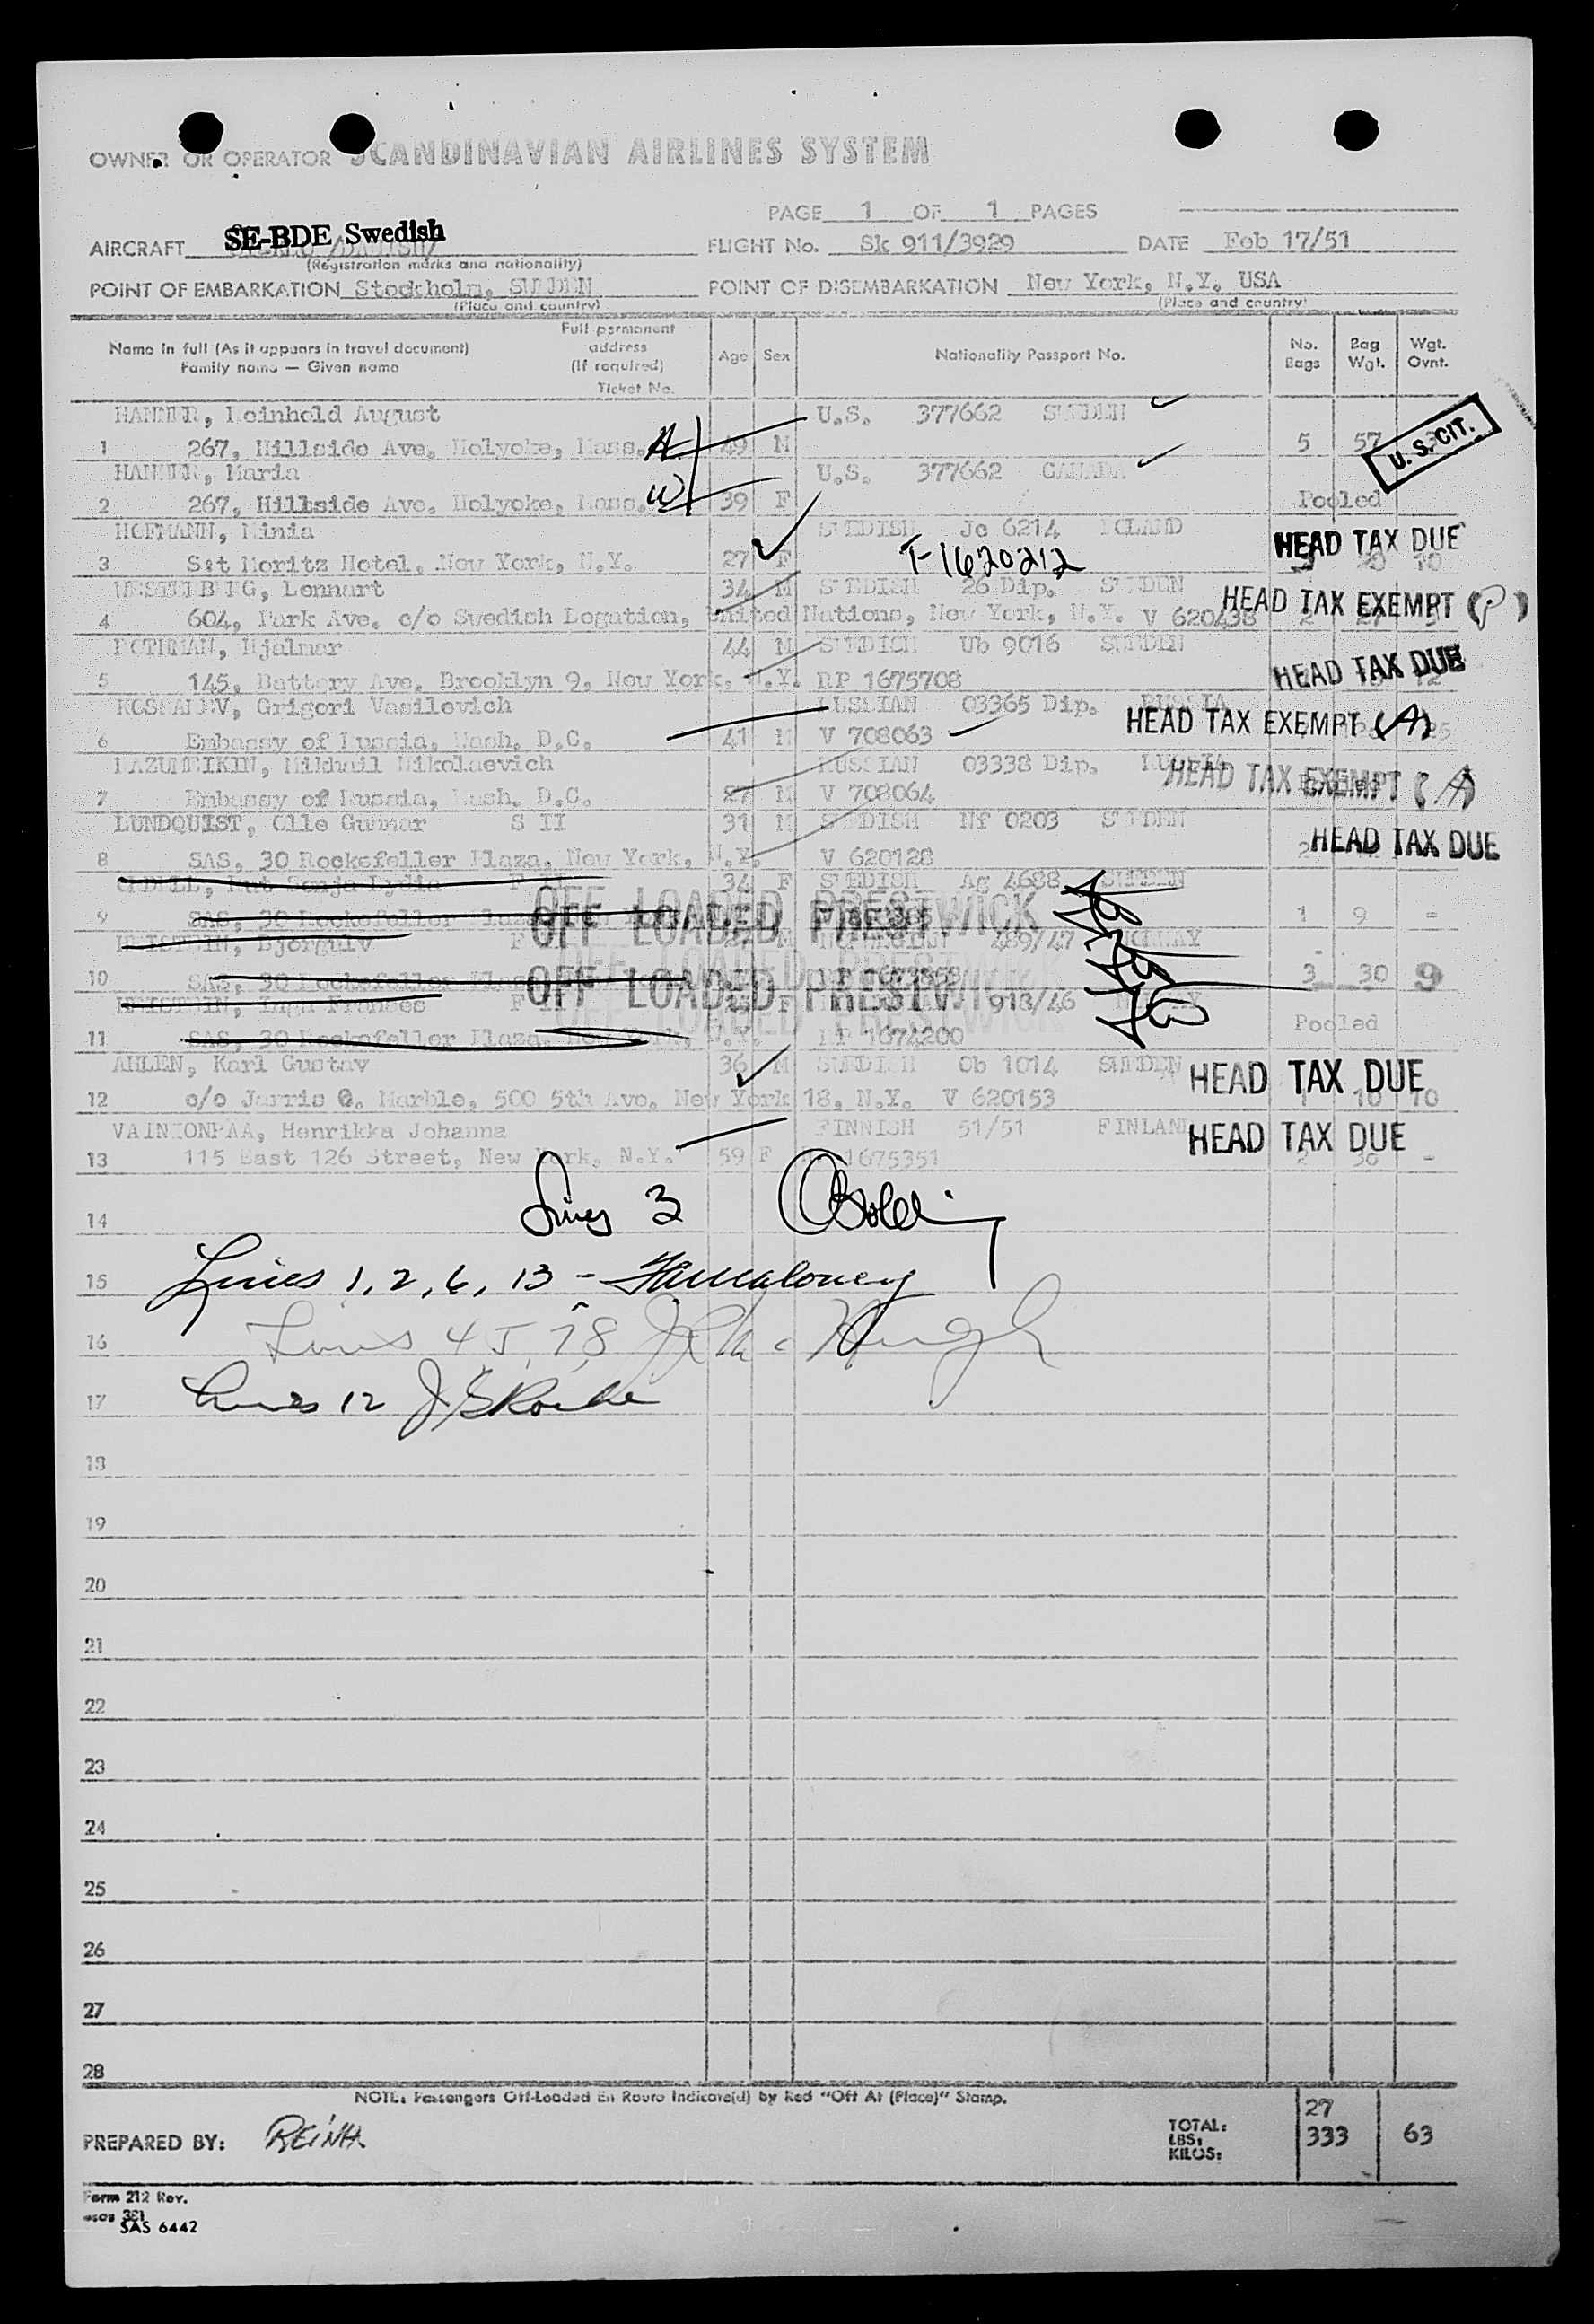 OWNER OR OPERATOR SCANDINAVIAN AIRLINES SYSTEM
PAGE 1 OF 1 PAGES
AIRCRAFT SE-BDE Swedish FLIGHT No. Sk 911/3929 DATE Feb 17/51
(Registration marks and nationality)
POINT OF EMBARKATION Stockholm, SWEDEN POINT OF DISEMBARKATION New York, N.Y. USA
(Place and country) (Place and country)
Name in full (As it appears in travel document) Family name — Given name Full permanent address (If required) Ticket No. Age Sex Nationality Passport No. No. Bags Bag Wgt. Wgt. Ovnt.
HANNER, Reinhold August U.S. 377662 SWEDEN
1 267, Hillside Ave. Holyoke, Mass. H 49 M 5 57 U.S. CIT.
HANNER, Maria U.S. 377662 CANADA
2 267, Hillside Ave. Holyoke, Mass. W 39 F Pooled
HOFMANN, Minia SWEDISH Jc 6214 POLAND
3 S:t Moritz Hotel, New York, N.Y. 27 F T-1620212 HEAD TAX DUE
Lennart 34 M SWEDISH 26 Dip. SWEDEN
4 604, Park Ave. c/o Swedish Legation, United Nations, New York, N.Y. V 620438 HEAD TAX EXEMPT (P)
Hjalmar 44 M SWEDISH Ub 9016 SWEDEN
5 145, Battery Ave. Brooklyn 9, New York, N.Y. RP 1675708 HEAD TAX DUE
Grigori Vasilevich RUSSIAN 03365 Dip. RUSSIA
6 Embassy of Russia, Wash. D.C. 41 M V 708063 HEAD TAX EXEMPT (A)
Mikhail Nikolaevich RUSSIAN 03338 Dip. RUSSIA
7 Embassy of Russia, Wash. D.C. 27 M V 708064 HEAD TAX EXEMPT (A)
LUNDQUIST, Olle Gunnar S II 31 M SWEDISH Nf 0203 SWEDEN
8 SAS, 30 Rockefeller Plaza, New York, N.Y. V 620128 2 HEAD TAX DUE
Sonja Lydia 34 F SWEDISH Ag 4688 SWEDEN
9 SAS, 30 Rockefeller Plaza OFF LOADED PRESTWICK 1 9 -
Bjorgulv 489/47 NORWAY
10 SAS, 30 Rockefeller Plaza OFF LOADED PRESTWICK 3 30 9
Inga Frances F 913/46
11 SAS, 30 Rockefeller Plaza, New York, N.Y. RP 1674200 Pooled
AHLEN, Karl Gustav 36 M SWEDISH Ob 1014 SWEDEN
12 c/o Jarris G. Marble, 500 5th Ave. New York 18, N.Y. V 620153 HEAD TAX DUE
VAINIONPAA, Henrikka Johanna FINNISH 51/51 FINLAND
13 115 East 126 Street, New York, N.Y. 59 F 1675351 HEAD TAX DUE
14 Lines 3
15 Lines 1, 2, 6, 13 -
16 Lines 4 5, 7, 8
17 Lines 12
18
19
20
21
22
23
24
25
26
27
28
NOTE: Passengers Off-Loaded En Route Indicate(d) by Red "Off At (Place)" Stamp.
PREPARED BY: TOTAL: LBS: KILOS: 27 333 63
Form 212 Rev.
SAS 6442